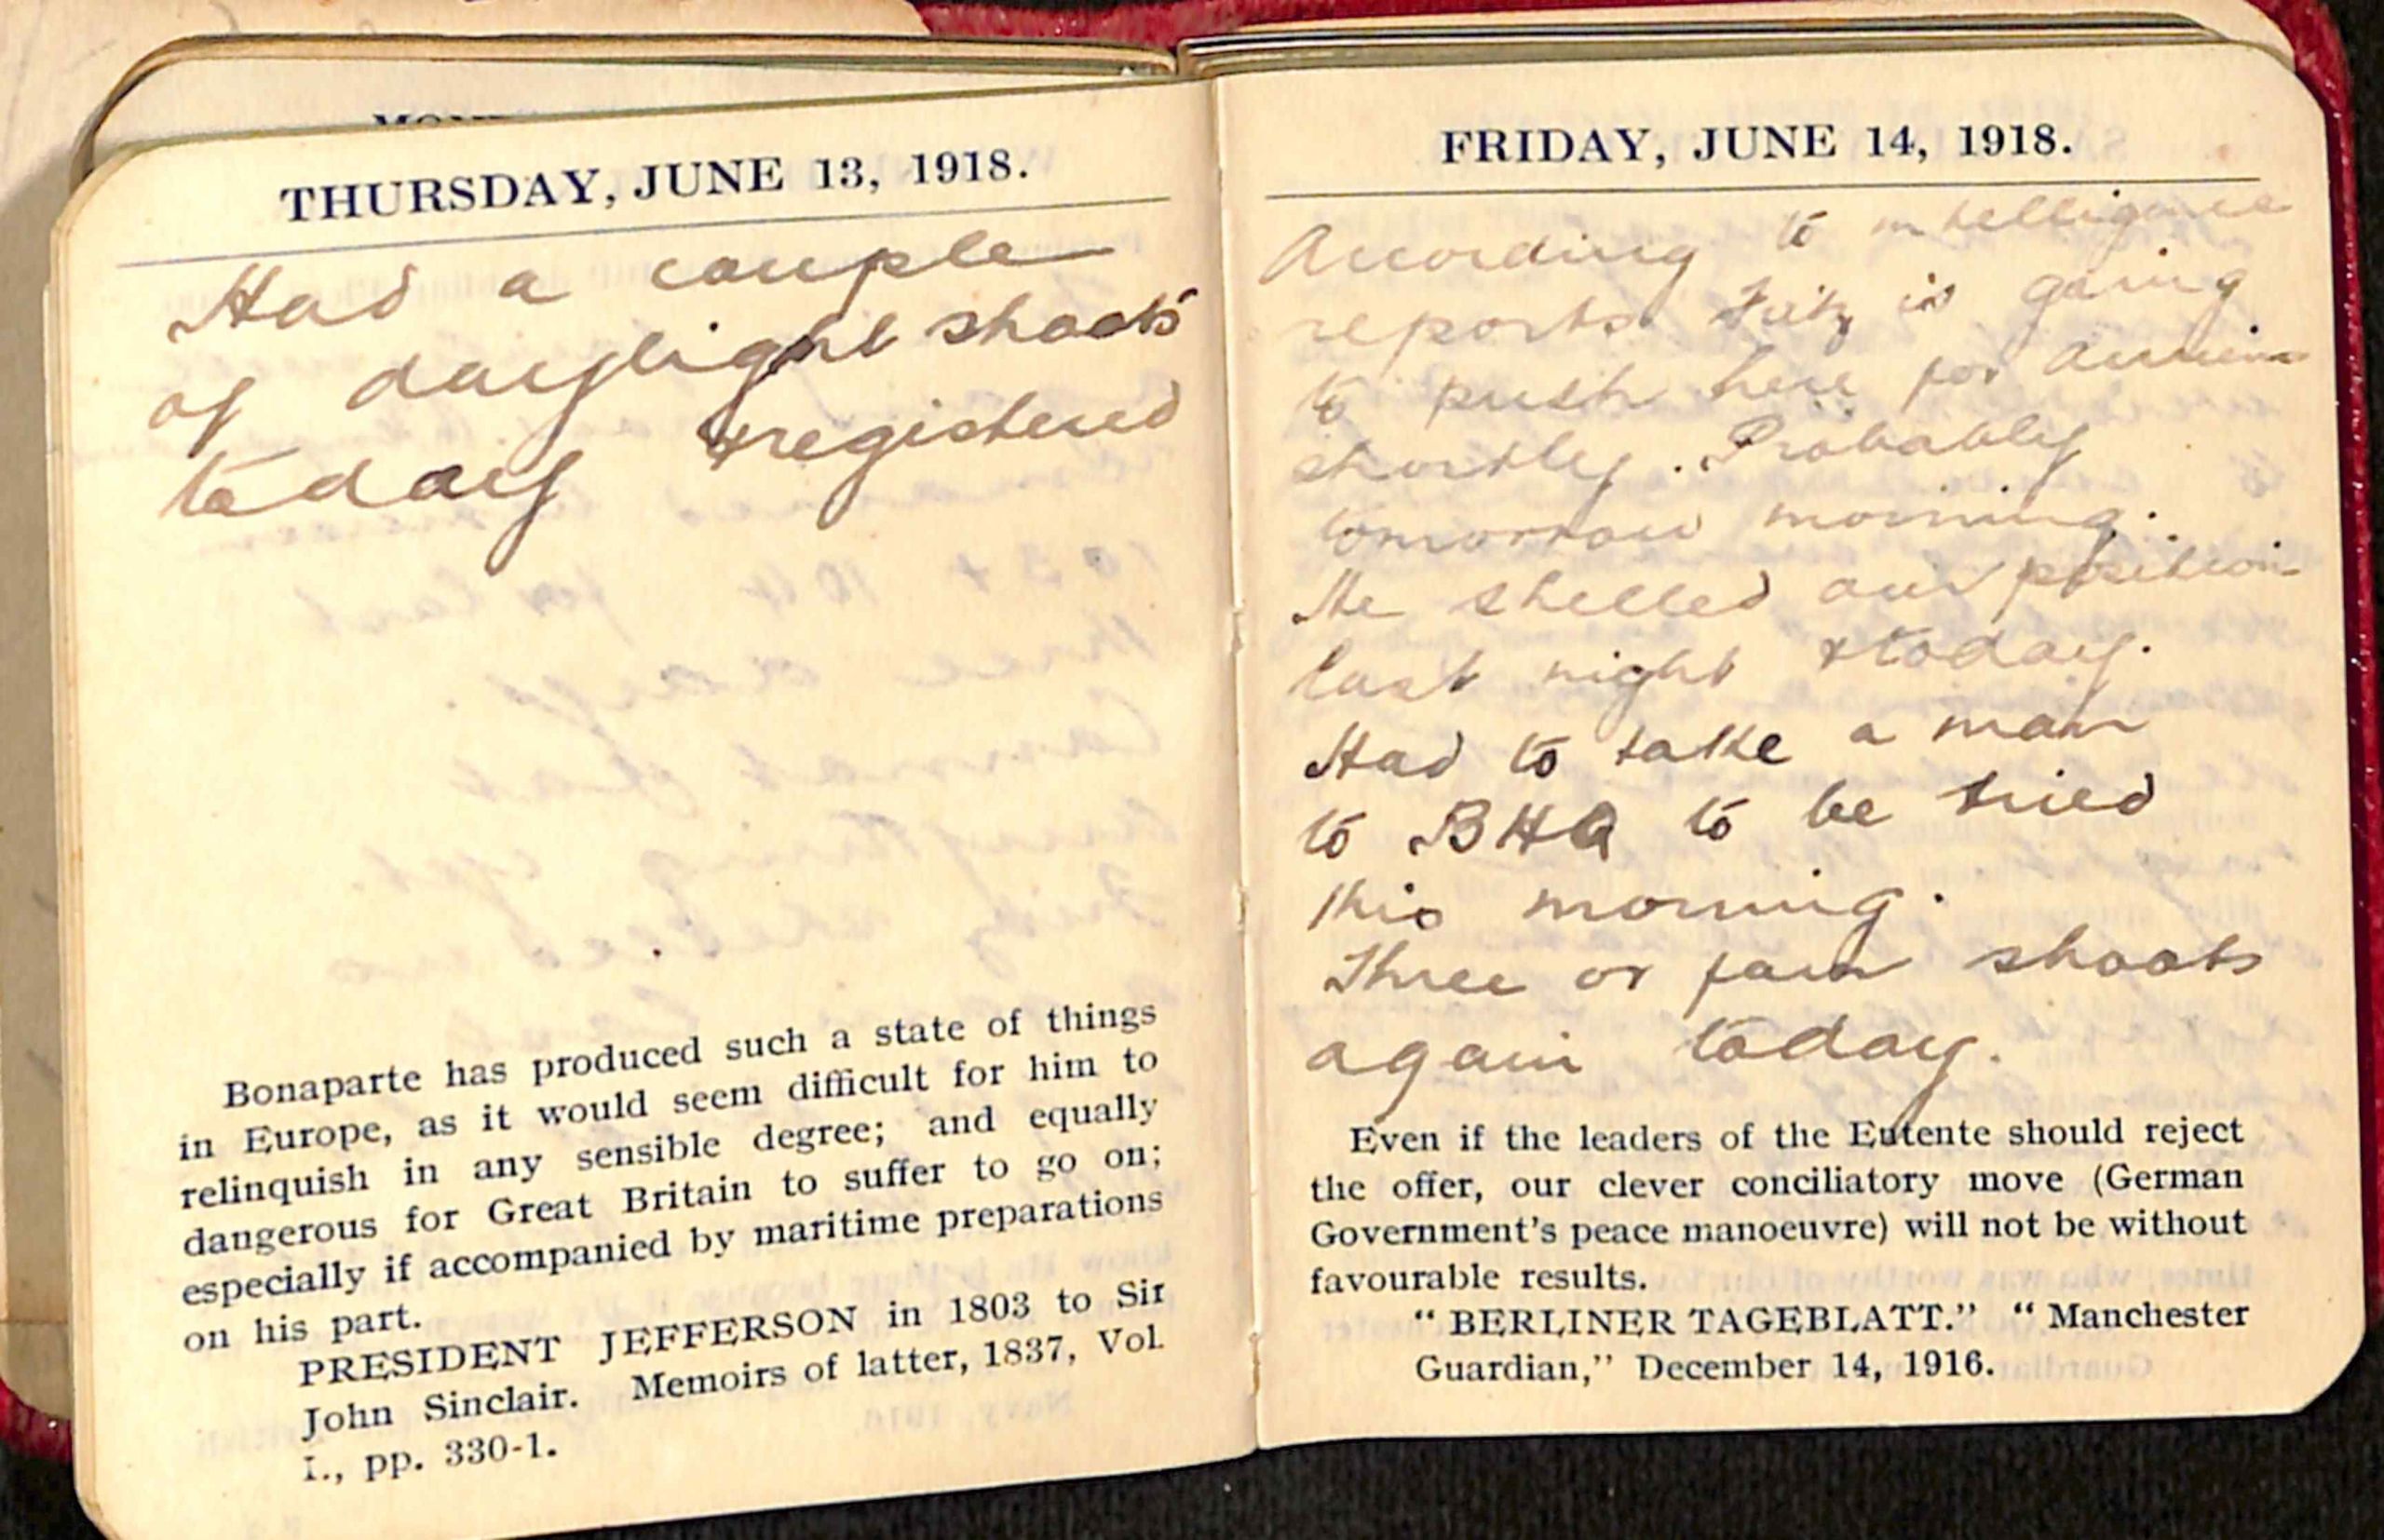 THURSDAY, JUNE 13, 1918.
Had a couple
of daylight shoots
today & registered
Bonaparte has produced such a state of things
in Europe, as it would seem difficult for him to
relinquish in any sensible degree; and equally
dangerous for Great Britain to suffer to go on;
especially if accompanied by maritime preparations
on his part.
PRESIDENT JEFFERSON in 1803 to Sir
John Sinclair. Memoirs of latter, 1837, Vol.
I., pp. 330-1.
FRIDAY, JUNE 14, 1918.
According to intelligence
reports Fritz is going
to push here for Amiens
shortly. Probably
tomorrow morning.
He shelled our position
last night & today.
Had to take a man
to BHQ to be tried
this morning.
Three or four shoots
again today.
Even if the leaders of the Entente should reject
the offer, our clever conciliatory move (German
Government's peace manoeuvre) will not be without
favourable results.
"BERLINER TAGEBLATT." "Manchester
Guardian," December 14, 1916.